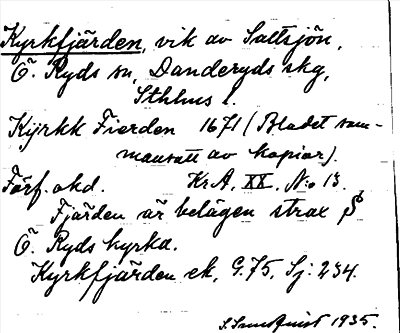 Kyrkfjärden, vik av Saltsjön,
Ö. Ryds sn, Danderyds skg,
Sthlms l.
Kÿrkk Fierden 1671 (Bladet sam-
mansatt av kopior).
Förf. okd. KrA, XX, N:o 13.
Fjärden är belägen strax S
Ö. Ryds kyrka.
Kyrkfjärden ek, G.75, Sj: 234.
S. Sundquist 1935.